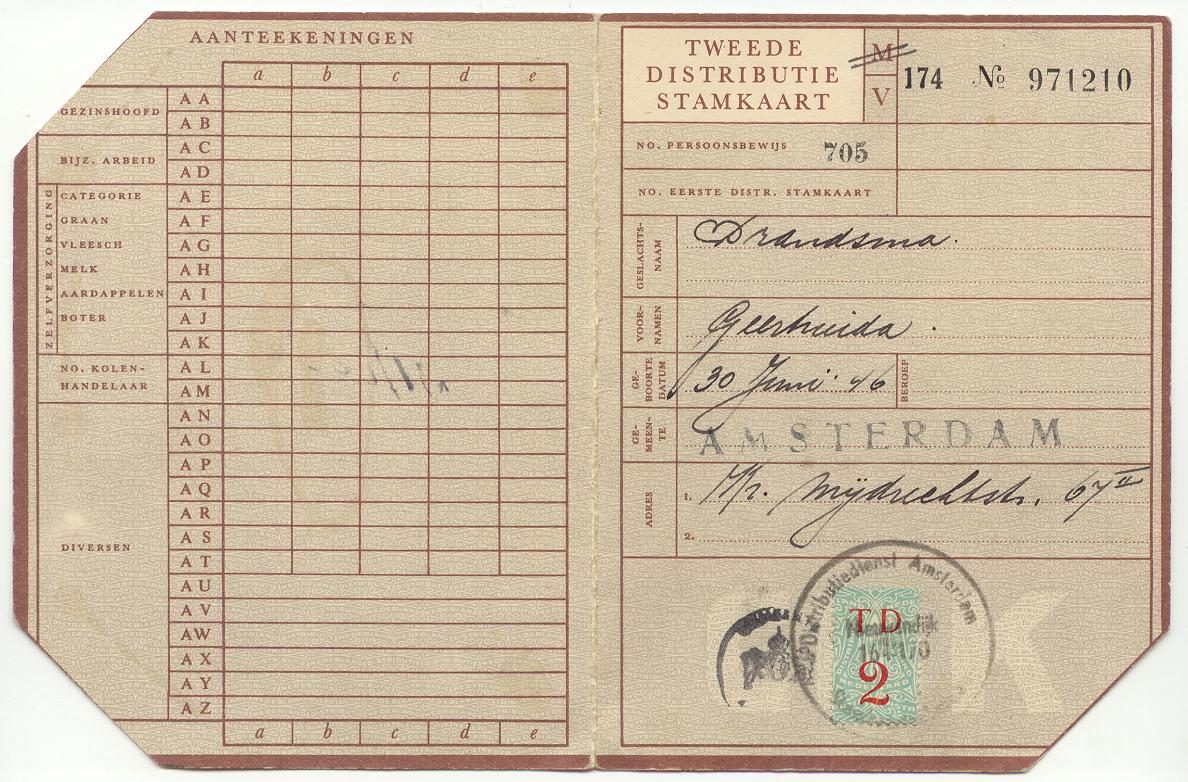 AANTEEKENINGEN
a b c d e
GEZINSHOOFD
A A
A B
BIJZ. ARBEID
A C
A D
ZELFVERZORGING
CATEGORIE A E
GRAAN A F
VLEESCH A G
MELK A H
AARDAPPELEN A I
BOTER A J
A K
NO. KOLEN-
HANDELAAR
A L
A M
DIVERSEN
A N
A O
A P
A Q
A R
A S
A T
A U
A V
A W
A X
A Y
A Z
a b c d e
TWEEDE
DISTRIBUTIE
STAMKAART
M
V
174 No 971210
NO. PERSOONSBEWIJS 705
NO. EERSTE DISTR. STAMKAART
GESLACHTS-
NAAM
Drandsma.
VOOR-
NAMEN
Geertruida.
GE-
BOORTE
DATUM
30 Juni '46
BEROEP
GE-
MEEN-
TE
AMSTERDAM
ADRES
1. Mijdrechtstr. 67 II
2.
Distributiedienst Amsterdam
T D
2